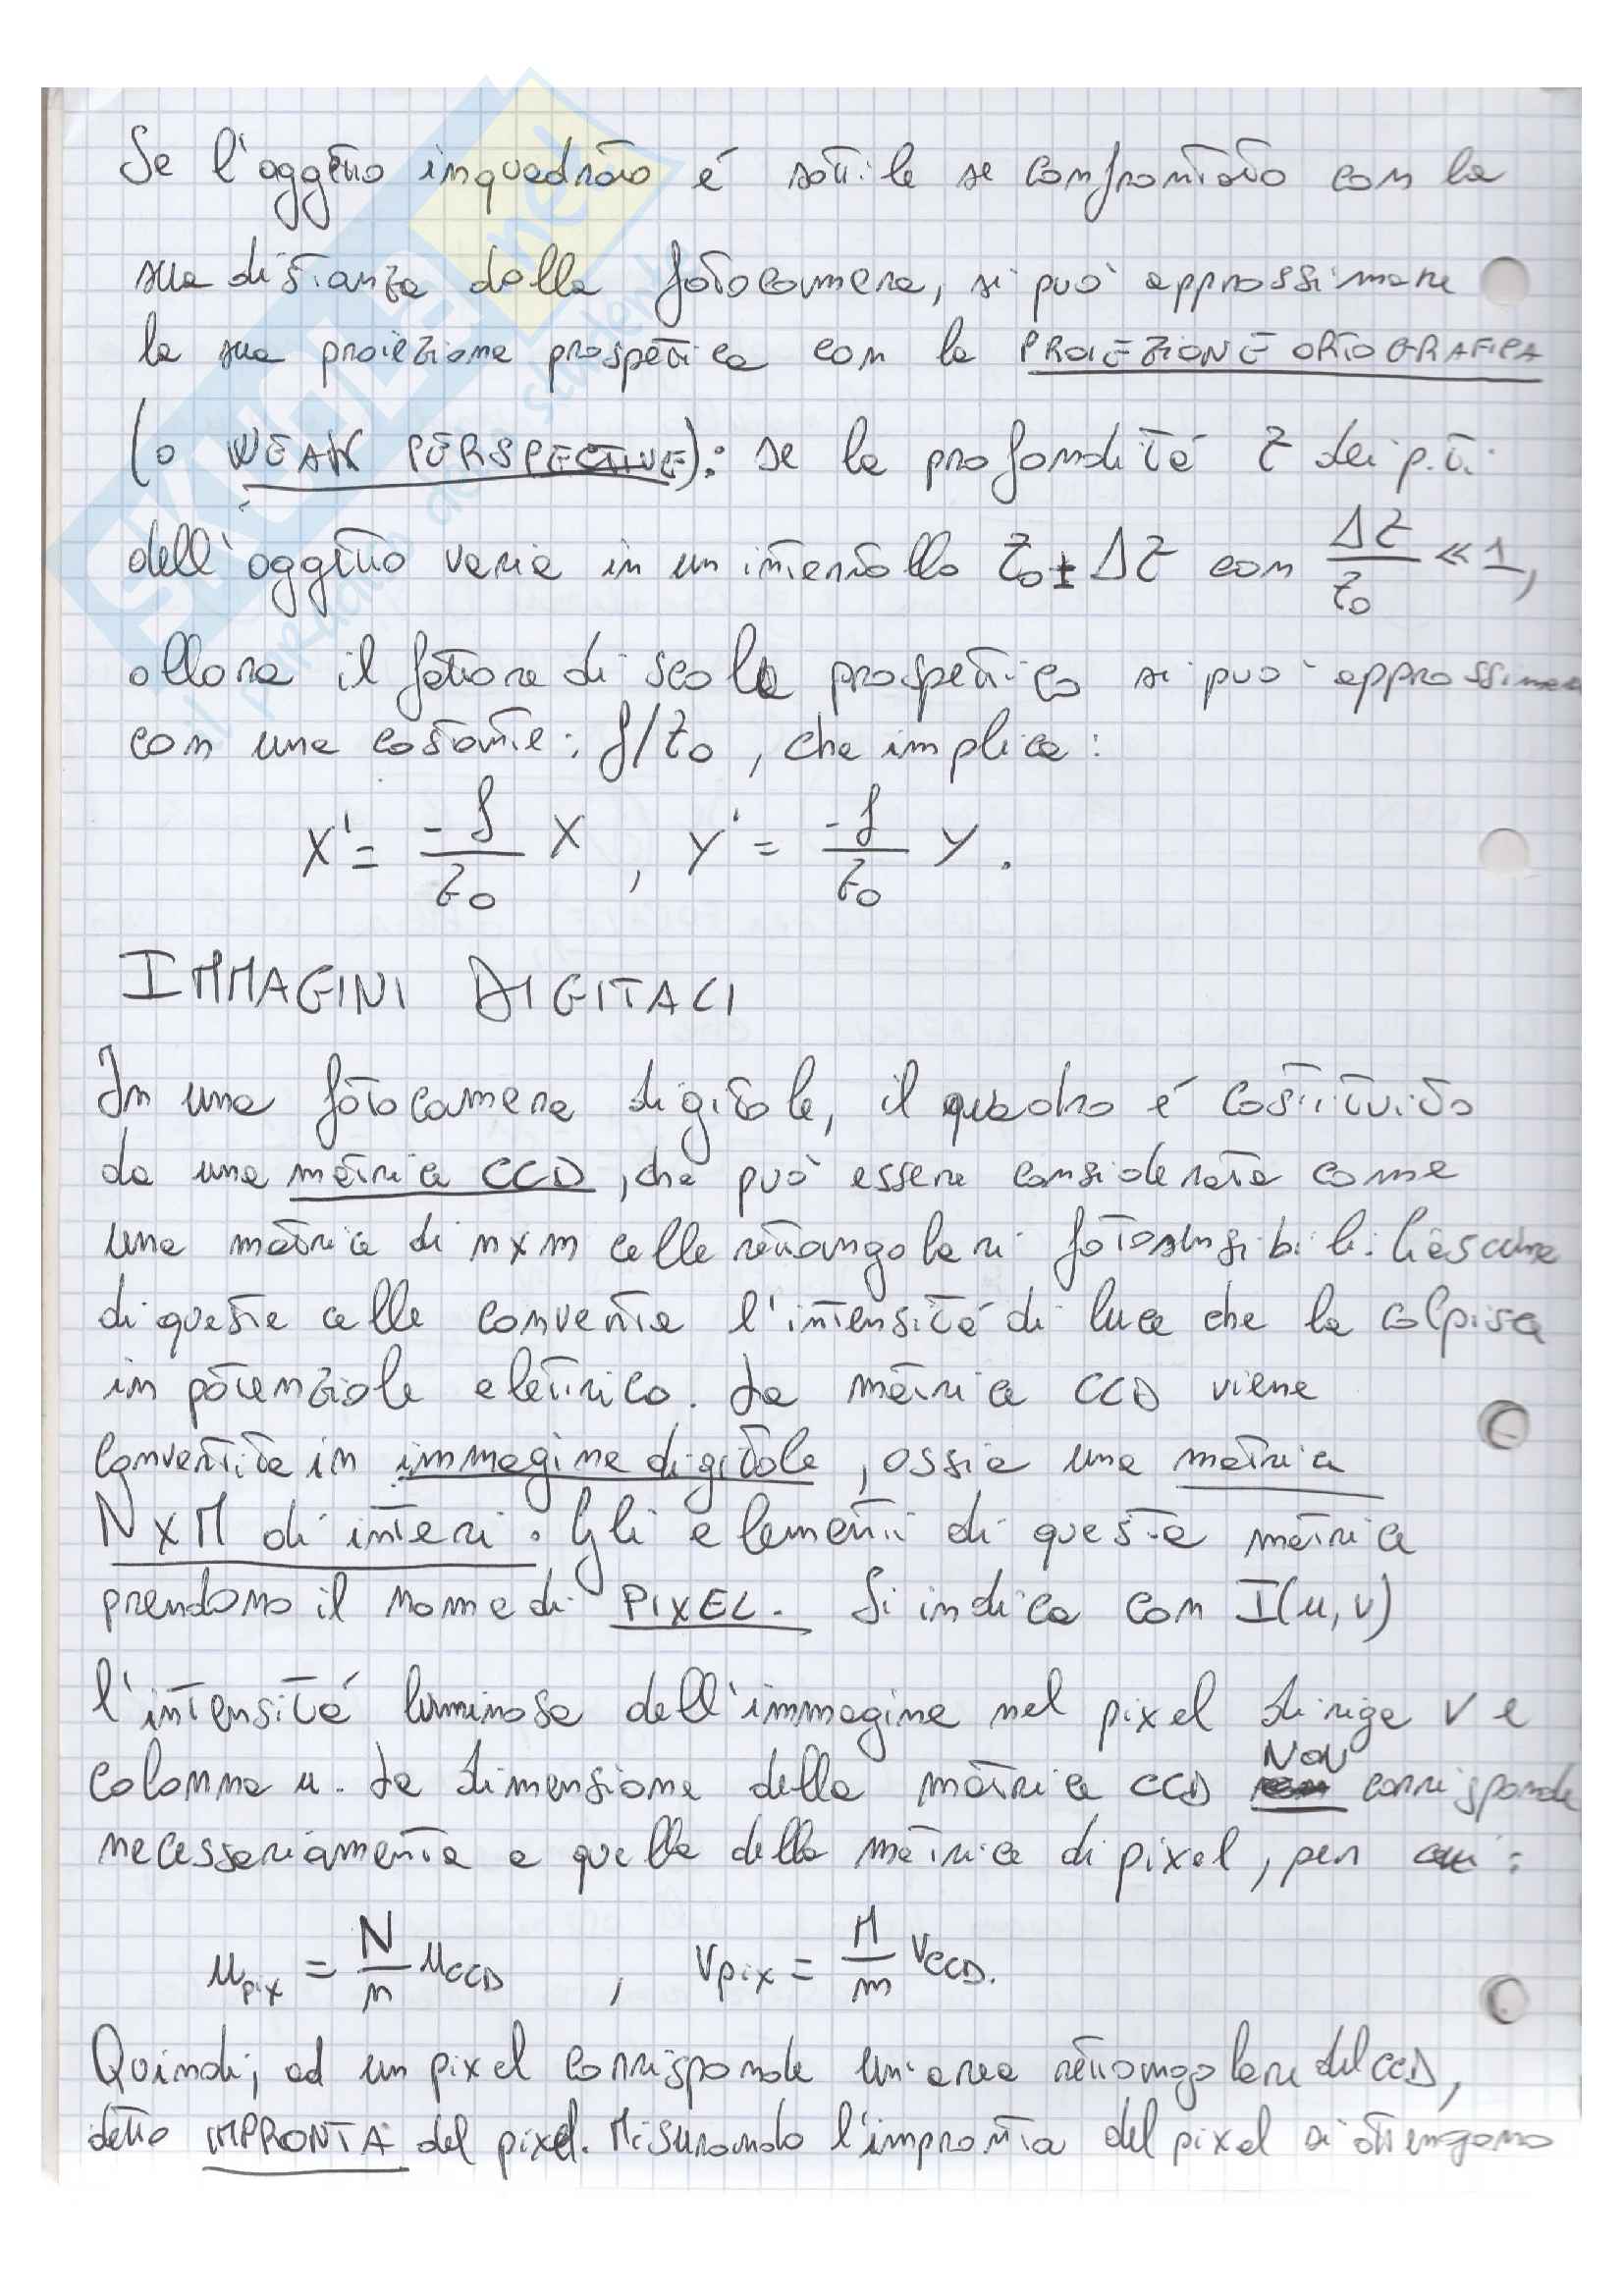 Se l'oggetto inquadrato é sottile se confrontato con la
sua distanza dalla fotocamera, si può approssimare
la sua proiezione prospettica con la PROIEZIONE ORTOGRAFICA
(o WEAK PERSPECTIVE): se la profondità z dei p.ti
dell'oggetto varia in un intervallo z₀ ± Δz con Δz/z₀ ≪ 1,
allora il fattore di scala prospettico si può approssimare
con una costante: f/z₀, che implica:
x' = -f/z₀ x , y' = -f/z₀ y.
IMMAGINI DIGITALI
In una fotocamera digitale, il quadro é costituito
da una matrice CCD, che può essere considerata come
una matrice di n×m celle rettangolari fotosensibili. Ciascuna
di queste celle converte l'intensità di luce che la colpisce
in potenziale elettrico. La matrice CCD viene
convertita in immagine digitale, ossia una matrice
N×M di interi. Gli elementi di questa matrice
prendono il nome di PIXEL. Si indica con I(u,v)
l'intensità luminosa dell'immagine nel pixel di riga v e
colonna u. La dimensione della matrice CCD NON corrisponde
necessariamente a quella della matrice di pixel, per cui:
u_pix = N/n u_CCD , v_pix = M/m v_CCD.
Quindi, ad un pixel corrisponde un'area rettangolare del CCD,
detta IMPRONTA del pixel. Misurando l'impronta del pixel si ottengono
SKUOLA.net